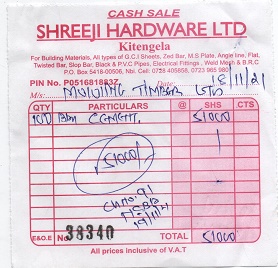 CASH SALE
SHREEJI HARDWARE LTD
Kitengela
For Building Materials, All types of G.C.I Sheets, Zed Bar, M.S Plate, Angle line, Flat,
Twisted Bar, Slop Bar, Black & P.V.C Pipes, Electrical Fittings, Weld Mesh & B.R.C
P.O. Box 5418-00506, Nbi. Cell: 0728 405656, 0723 965 980
PIN No. P051681883Z Date 18/11/21
M/s: TIMBER LTD
QTY PARTICULARS @ SHS CTS
CEMENT. 51000
51000
E&O.E No. 38340 TOTAL 51000
All prices inclusive of V.A.T